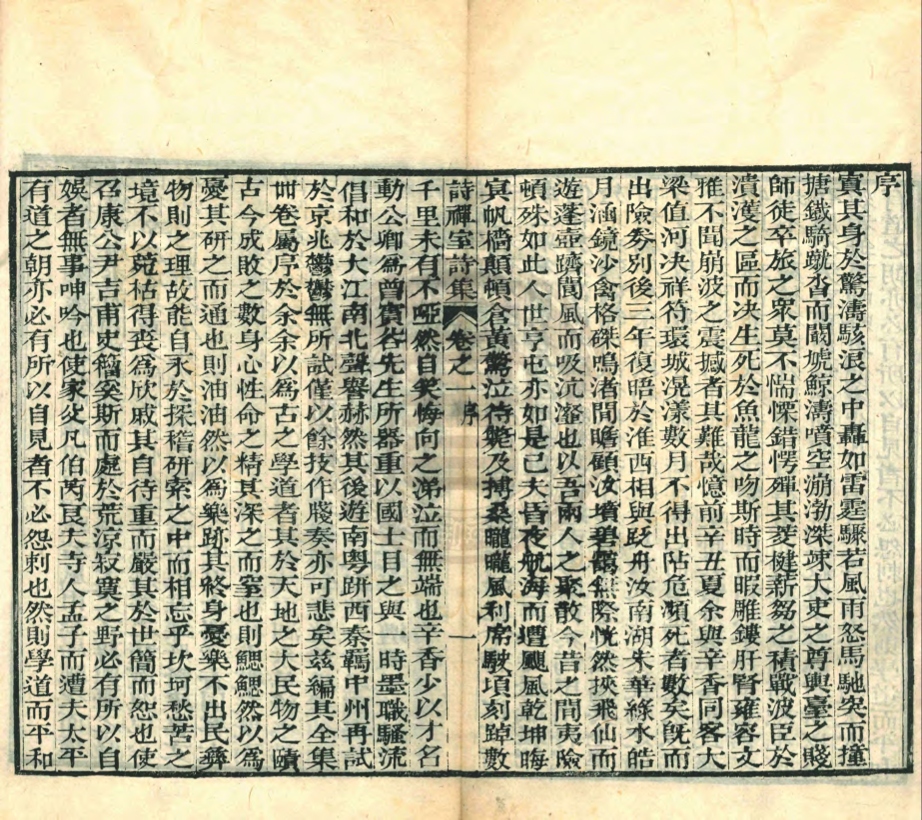 序
寘其身於驚濤駭浪之中轟如雷霆驟若風雨怒馬馳突而撞
搪鐵騎蹴沓而闞虓鯨濤噴空漰渤溁竦大吏之尊輿臺之賤
師徒卒旅之衆莫不惴慄錯愕殫其菱楗薪芻之積戰波臣於
潰濩之區而决生死於魚龍之吻斯時而暇雕鏤肝腎雍容文
雅不聞崩波之震撼者其難哉憶前辛丑夏余與辛香同客大
梁值河决祥符環城滉瀁數月不得出阽危瀕死者數矣旣而
出險劵別後三年復晤於淮西相與泛舟汝南湖朱華綠水皓
月涵鏡沙禽格磔鳴渚間瞻顧汝墳碧鷗無際恍然挾飛仙而
遊蓬壺躋閬風而吸沆瀣也以吾兩人之聚散今昔之間夷險
頓殊如此人世亨屯亦如是已夫昏夜航海而遭颶風乾坤晦
㝠帆檣顚頓倉黃驚泣待斃及搏桑曨曨風利席駛頃刻踔數
詩禪室詩集 卷之一 序 一
千里未有不啞然自笑悔向之涕泣而無端也辛香少以才名
動公卿爲曾賓谷先生所器重以國士目之與一時墨職騷流
倡和於大江南北聲譽赫然其後遊南粵跰西秦羈中州再試
於京兆鬱鬱無所試僅以餘技作牋奏亦可悲矣兹編其全集
卌卷屬序於余余以爲古之學道者其於天地之大民物之賾
古今成敗之數身心性命之精其深之而窒也則鰓鰓然以爲
憂其研之而通也則油油然以爲樂跡其終身憂樂不出民彝
物則之理故能自永於探稽研索之中而相忘乎坎坷愁苦之
境不以菀枯得喪爲欣戚其自待重而嚴其於世簡而恕也使
召康公尹吉甫史籀奚斯而處於荒涼寂寞之野必有所以自
娛者無事呻吟也使家父凡伯芮良夫寺人孟子而遭夫太平
有道之朝亦必有所以自見者不必怨刺也然則學道而平和